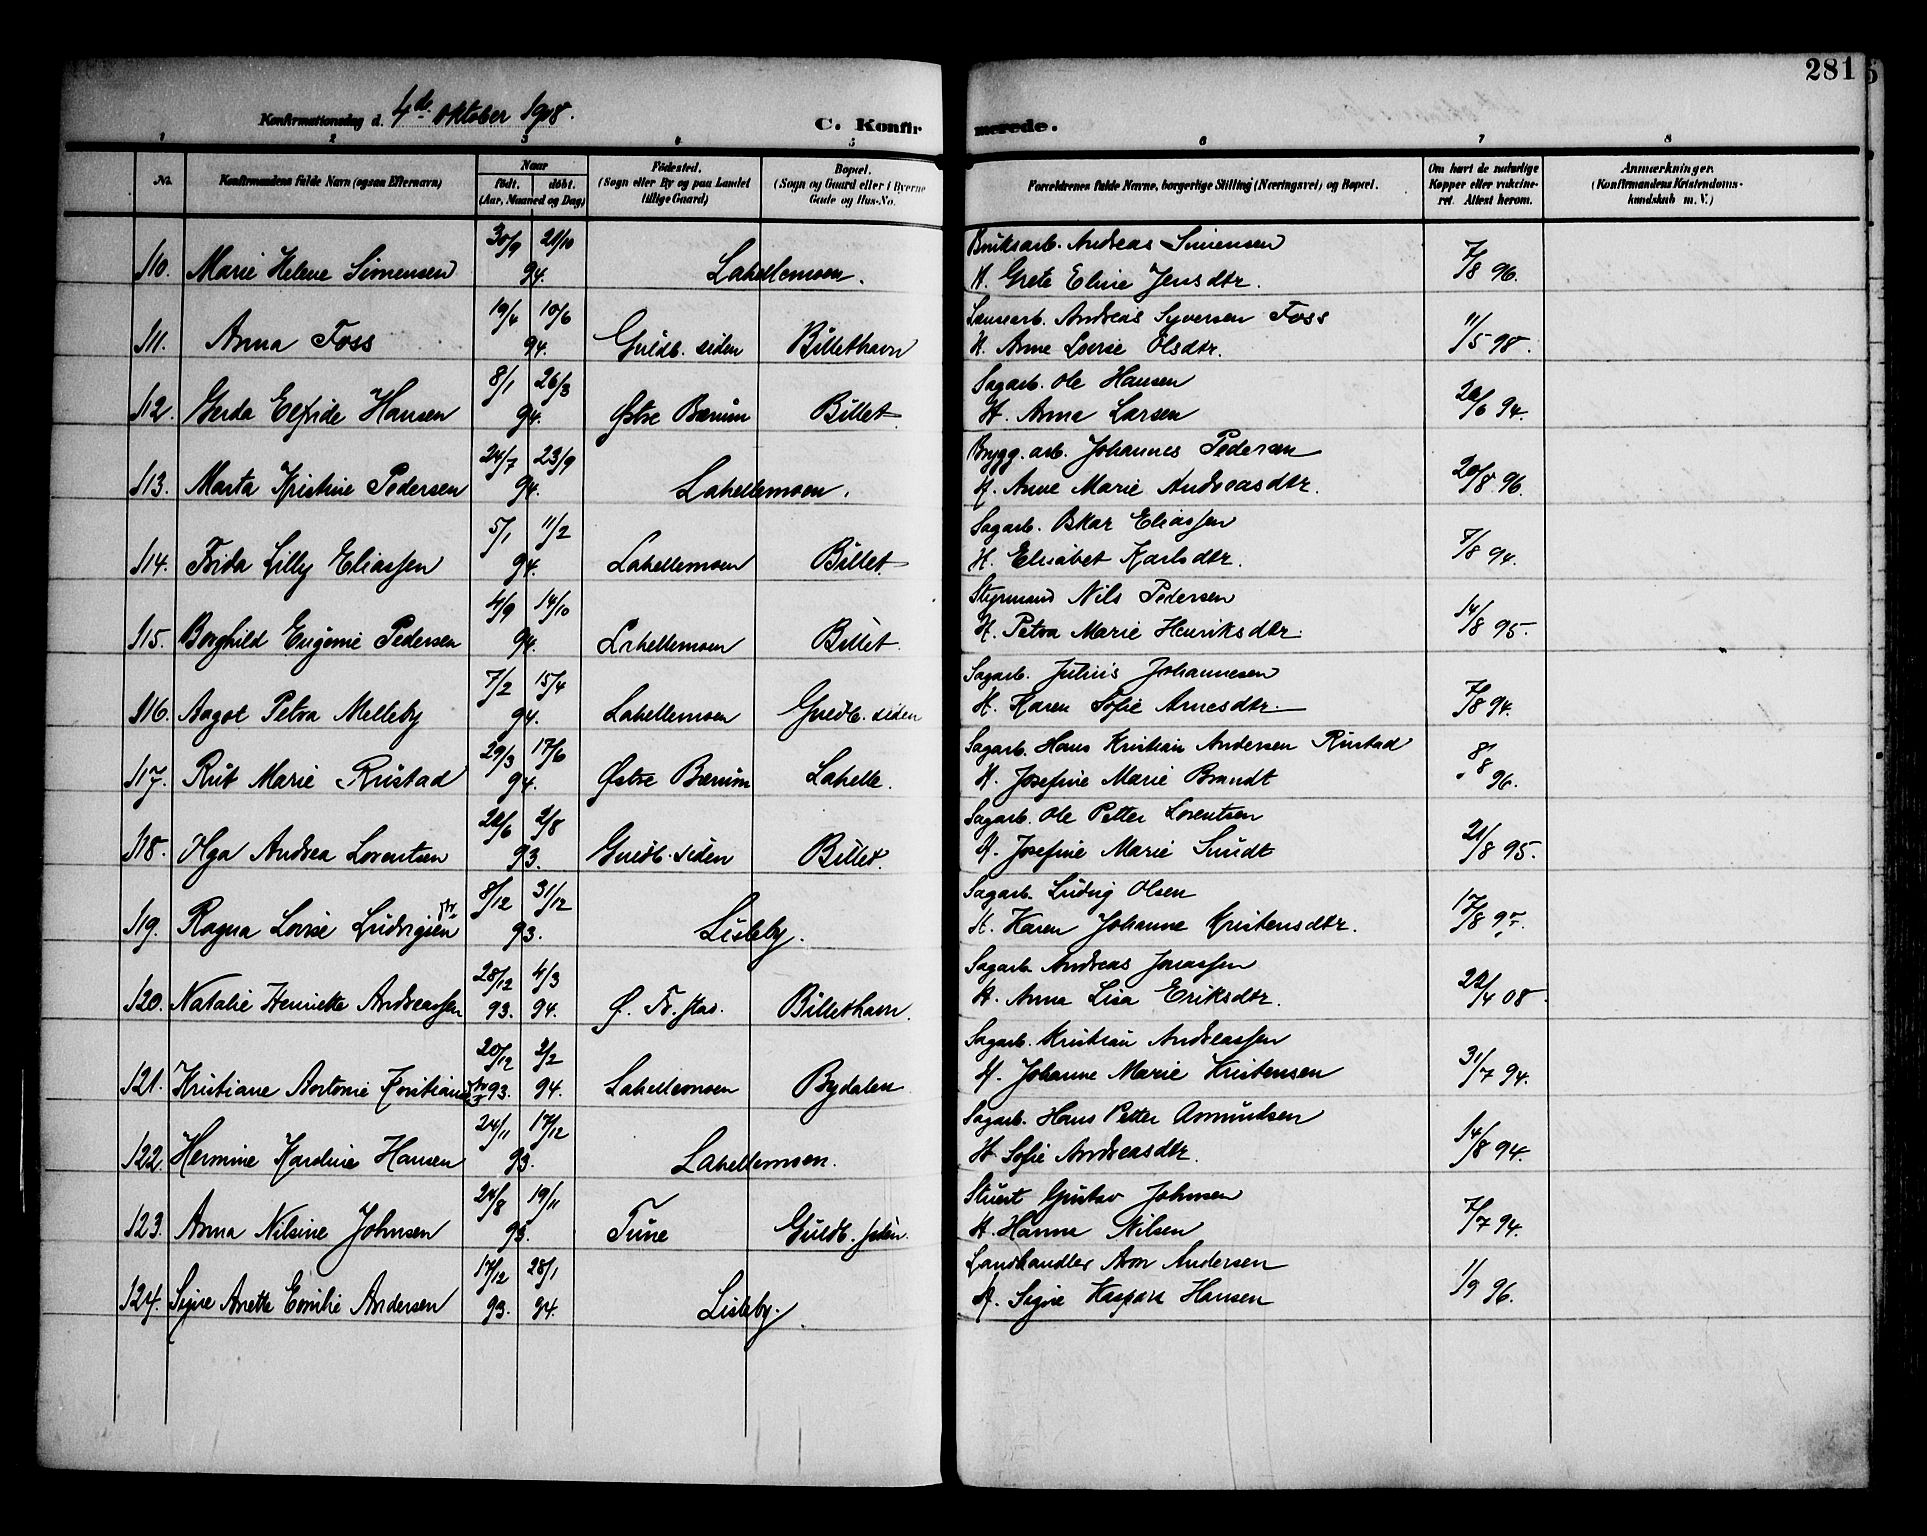 281
Konfirmationsdag d. 4de oktober 1908.
C. Konfirmerede.
1 2 3 4 5 6 7 8
No.
Konfirmandens fulde Navn (ogsaa Efternavn)
Naar
födt. döbt.
(Aar, Maaned og Dag)
Födested.
(Sogn eller By og paa Landet
tillige Gaard)
Bopæl.
(Sogn og Gaard eller i Byerne
Gade og Hus-No.
Forældrenes fulde Navne, borgerlige Stilling (Næringsvei) og Bopæl.
Om havt de naturlige
Kopper eller vakcine-
ret. Attest herom.
Anmærkninger.
(Konfirmandens Kristendoms-
kundskab m. V.)
30/9 21/10 Bruksarb. Andreas Simensen
110. Marie Helene Simensen 94. Lahellemoen. H. Grete Eline Jensdtr. 7/8 96.
19/4 10/6 Lænsearb. Andreas Syversen Foss
111. Anna Foss 94. Guldb. siden Billethavn H. Anne Lovise Olsdtr. 11/5 98.
8/1 26/3 Sagarb. Ole Hansen
112. Gerda Elfride Hansen 94. Østre Bærum Billet H. Anna Larsen 20/6 94.
24/7 23/9 Brygg. arb. Johannes Pedersen
113. Marta Kristine Pedersen 94. Lahellemoen. H. Anne Marie Andreasdtr. 20/8 96.
5/1 11/2 Sagarb. Oskar Eliassen
114. Frida Lilly Eliassen 94. Lahellemoen Billet H. Elisabet Karlsdtr. 7/8 94.
4/9 14/10 Styrmand Nils Pedersen
115. Borghild Eugenie Pedersen 94. Lahellemoen Billet. H. Petra Marie Henriksdtr. 14/8 95.
7/2 15/4 Sagarb. Julius Johannesen
116. Aagot Petra Melleby 94. Lahellemoen Guldb. siden H. Karen Sofie Arnesdtr. 7/8 94.
29/3 17/6 Sagarb. Hans Kristian Andersen Rustad
117. Rut Marie Rustad 94. Østre Bærum Lahelle. H. Josefine Marie Brandt 8/8 96.
22/6 2/8 Sagarb. Ole Petter Lorentsen
118. Olga Andrea Lorentsen 93. Guldb. siden Billet. H. Josefine Marie Sundt 21/8 95.
8/12 31/12 Sagarb. Ludvig Olsen
119. Ragna Lovise Ludvigsen 93. Lisleby. H. Karen Johanne Kristensdtr. 17/8 95.
28/12 4/3 Sagarb. Andreas Jonassen
120. Natalie Henriette Andreassen 93. 94. Ø. Fr. stad. Billethavn. H. Anna Lisa Eriksdtr. 22/4 08.
20/12 2/2 Sagarb. Kristian Andreassen
121. Kristiane Antonie Kristians 93. 94. Lahellemoen Bydalen H. Johanne Marie Kristensen 31/7 94.
24/11 17/12 Sagarb. Hans Petter Amundsen
122. Hermine Karoline Hansen 93. Lahellemoen. H. Sofie Andreasdtr. 14/8 94.
24/8 19/11 Stuert Gustav Johnsen
123. Anna Nilsine Johnsen 93. Tune Guldb. siden. H. Hanna Nilsen 7/7 94.
17/12 28/1 Landhandler Aron Andersen
124. Signe Anette Emilie Andersen 93. 94. Lisleby. H. Signe Kaspara Hansen 1/9 96.